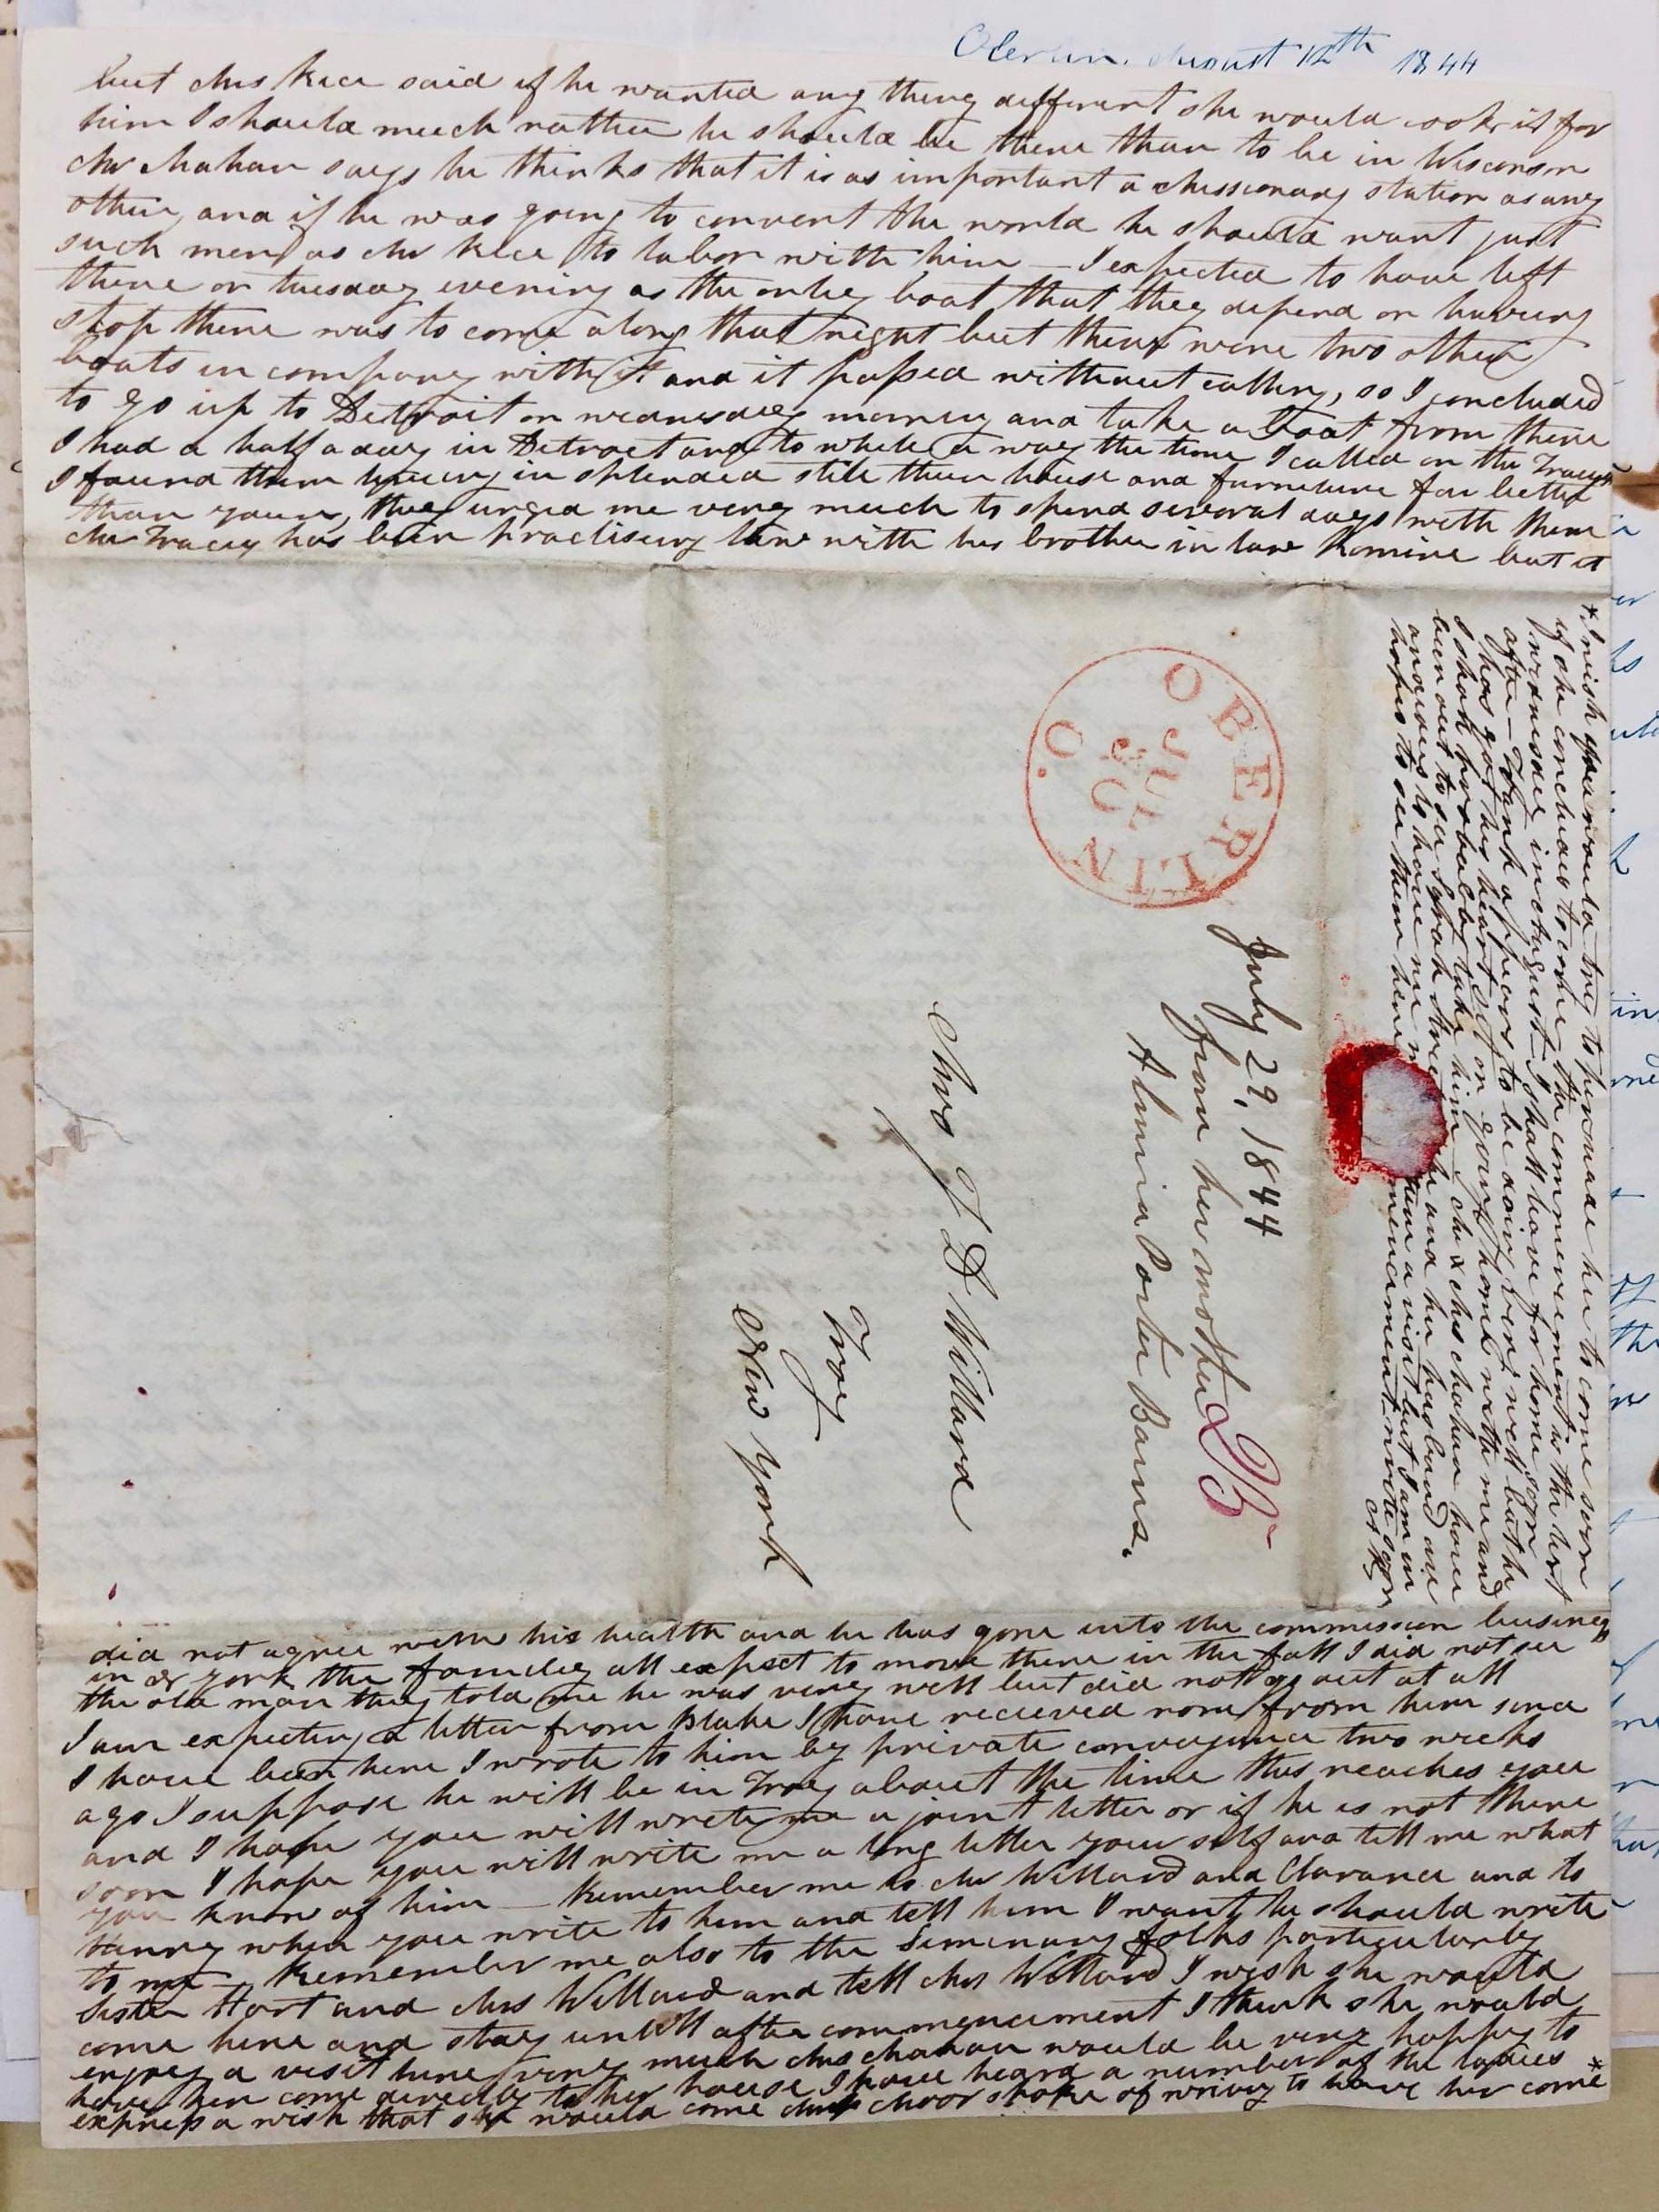 Oberlin August 12th 1844
but Mrs Rice said if he wanted any thing different she would cook it for
him I should much rather he should be there than to be in Wisconsin
Mr Mahan says he thinks that it is as important a Missionary station as any
other, and if he was going to convert the world he should want just
such men as Mr Rice to labor with him — I expected to have left
there on tuesday evening as the only boat that they depend on having
stop there was to come along that night but there were two other
boats in company with it and it passed without calling, so I concluded
to go up to Detroit on wednesday morning and take a Boat from there
I had a half a day in Detroit and to while a way the time I called on the Traceys
I found them living in splendid stile their house and furniture far better
than yours, they urged me very much to spend several days with them
Mr Tracey has been practising law with his brother in law Romine but it
OBERLIN
O.
JUL
30
July 29, 1844
from her mother
Almira Porter Barnes.
25
Mrs J D Willard
Troy
New York
* I wish you would try to persuade her to come soon
if she concludes to come the commencement is the last
wednesday in August I shall leave for home soon
after — Frank appears to be doing very well but he
has got his heart set on going home with me and
I shall probably take him — Mr & Mrs Mahan have
been out to see Sarah and her husband are
anxious to have me a visit but I am in
hopes to see them here commencement — write soon
A B
did not agree with his health and he has gone into the commission business
in N York the family all expect to move there in the fall I did not see
the old man they told me he was very well but did not go out at all
I am expecting a letter from Blake I have recieved none from him since
I have been here I wrote to him by private conveyance two weeks
ago I suppose he will be in Troy about the time this reaches you
and I hope you will write me a joint letter or if he is not there
soon I hope you will write me a long letter your self and tell me what
you know of him — Remember me to Mr Willard and Clarance and to
Henry when you write to him and tell him I want he should write
to me — Remember me also to the Seminary folks particularly
Sister Hart and Mrs Willard and tell Mrs Willard I wish she would
come here and stay untill after commencement I think she would
enjoy a visit here very much Mrs Mahan would be very happy to
have her come directly to her house I have heard a number of the ladies *
express a wish that she would come spoke of writing to have her come